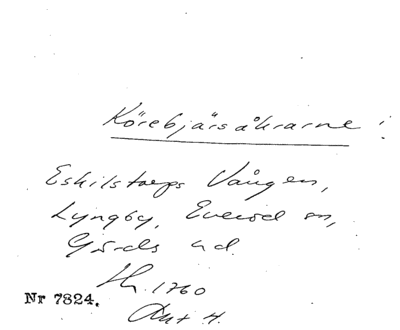 Körebjärsåkrarne i
Eskilstorps Vången,
Lyngby, Everöd sn,
Gärds hd.
1760
Nr 7824.
Akt 4.